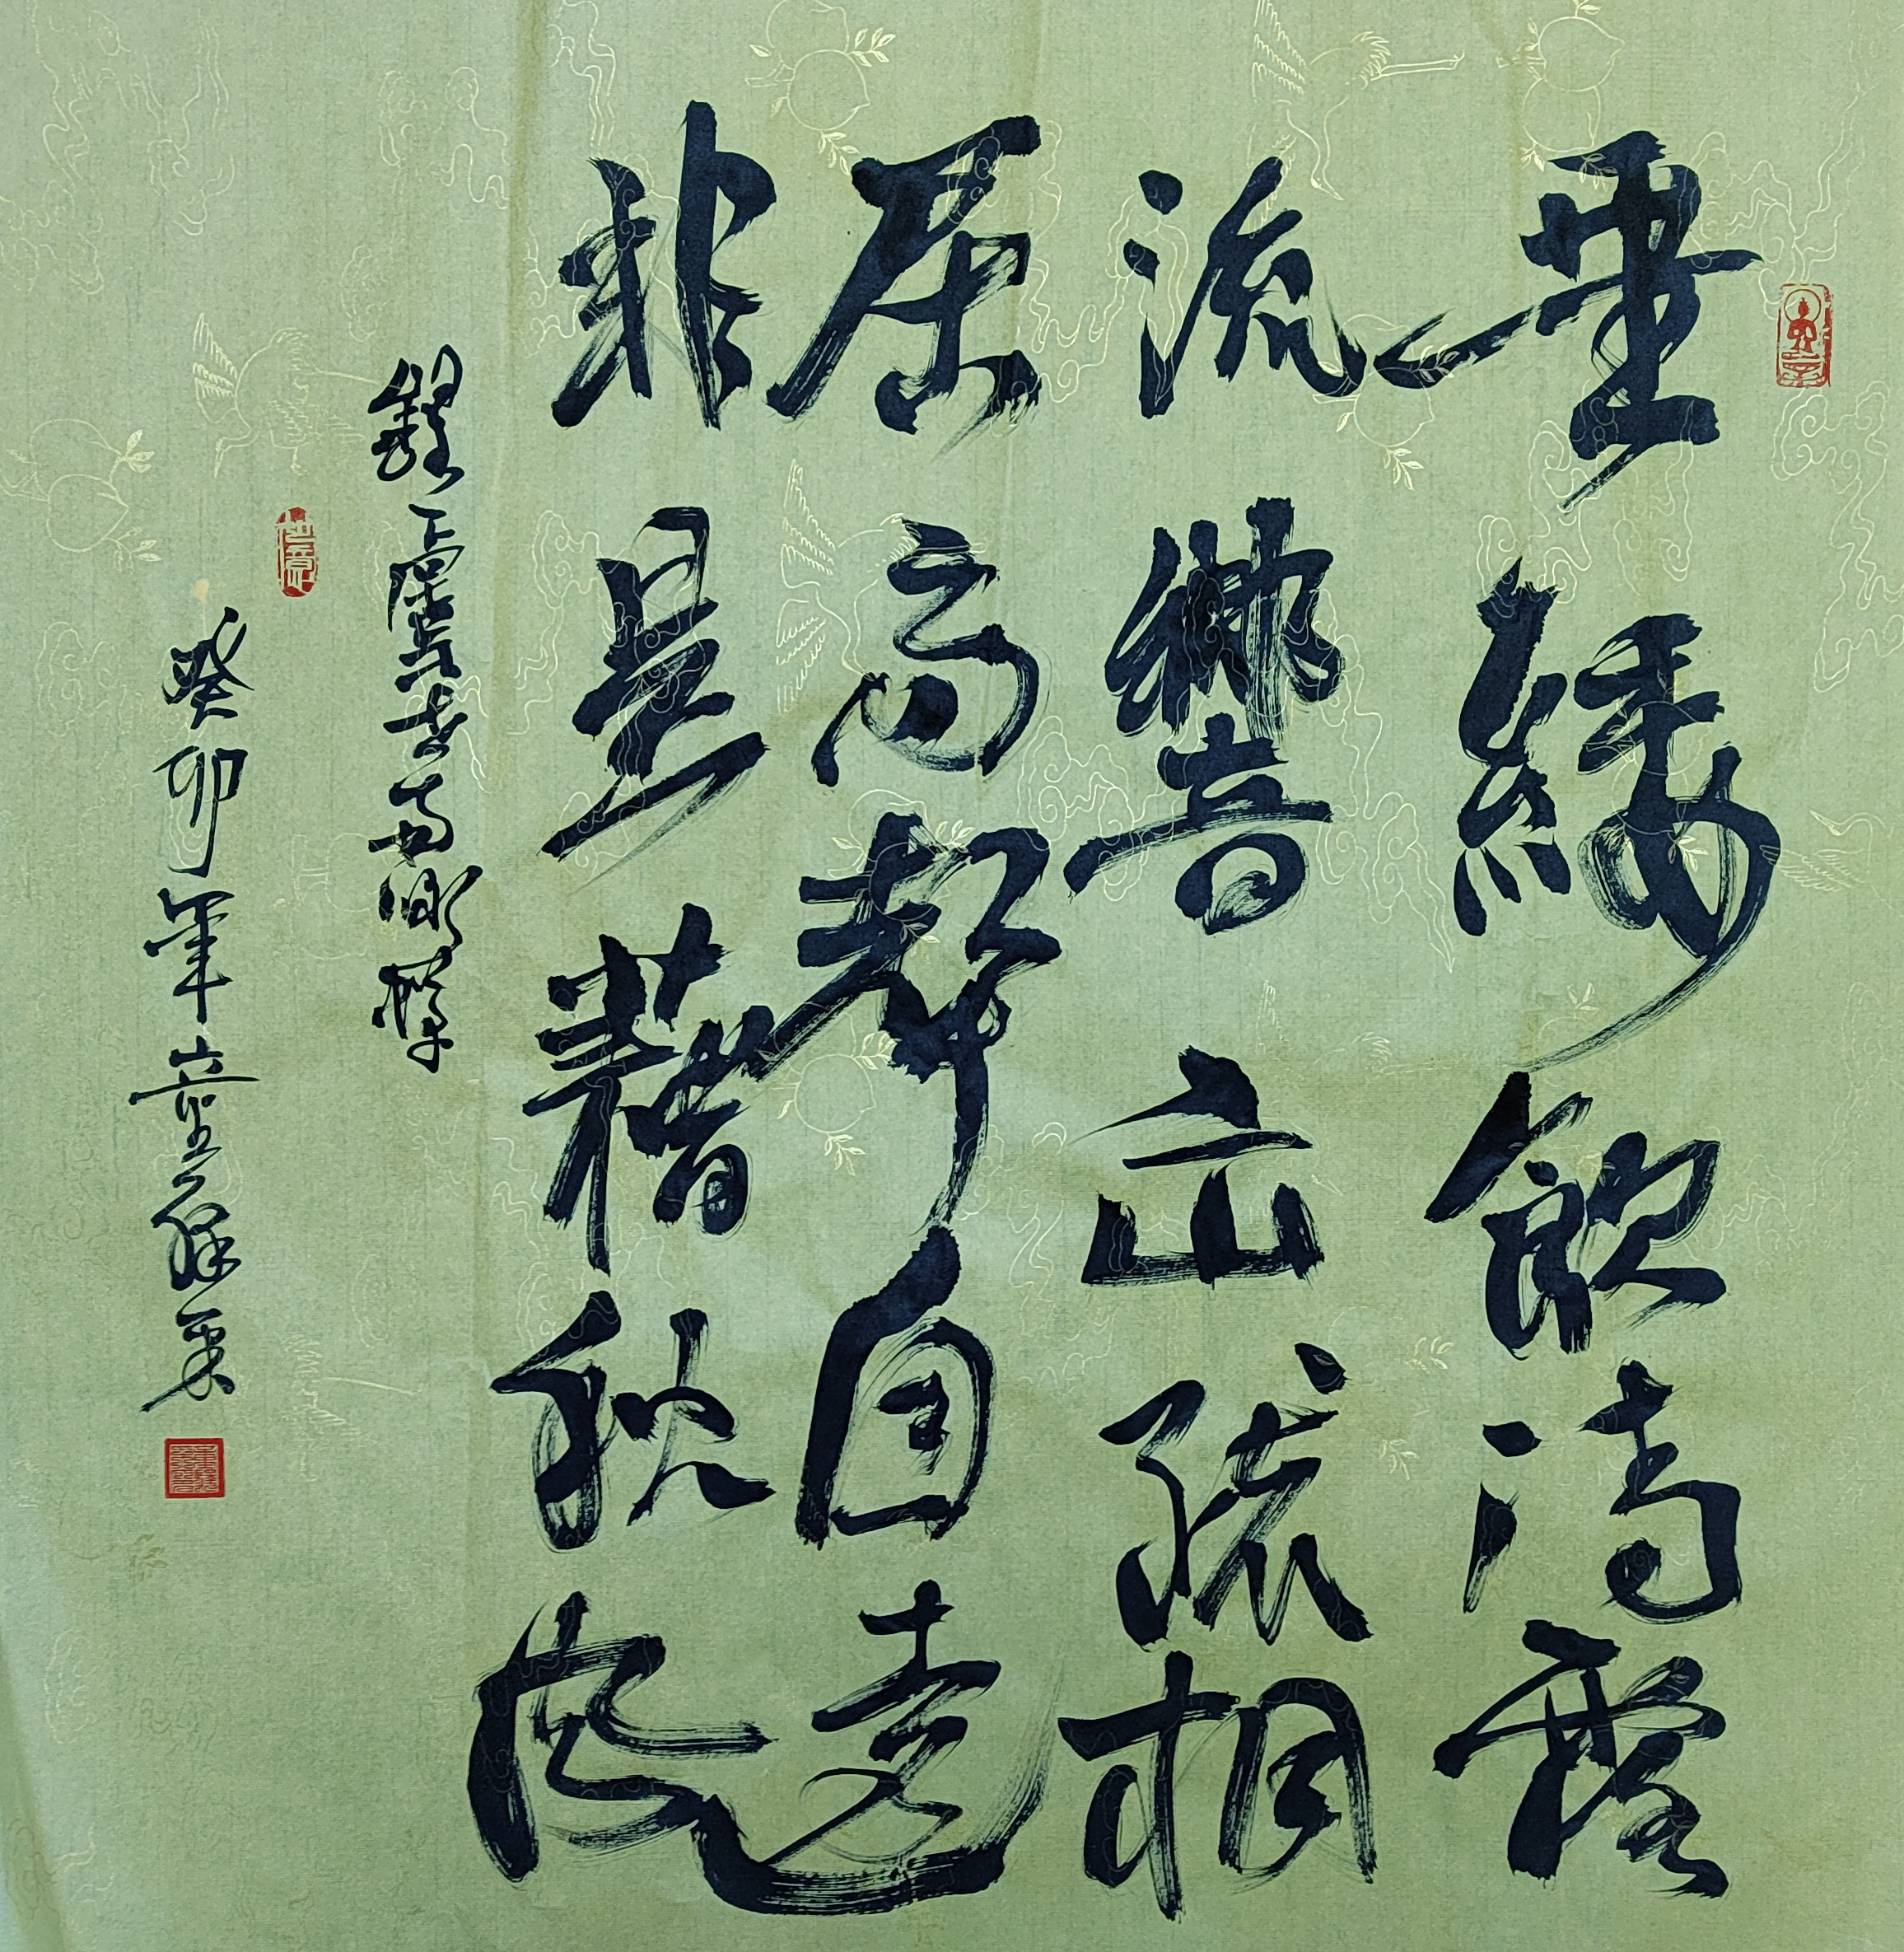 垂緌飲清露
流響出疏桐
居高聲自遠
非是藉秋風
錄虞世南詠蟬
癸卯年